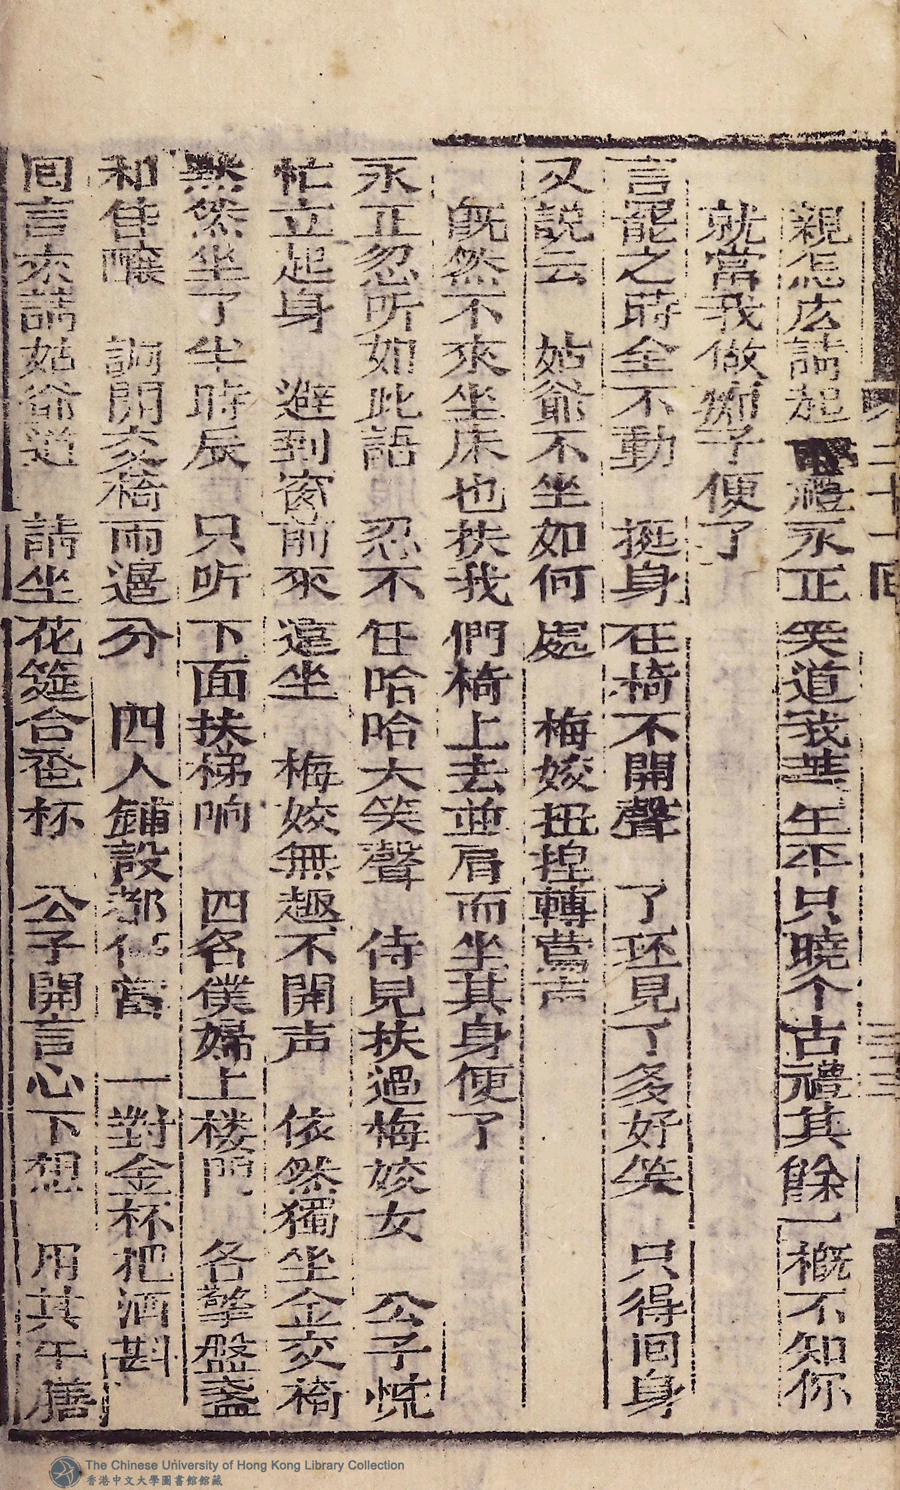 親怎広請起 禮永正笑道我葉生平只曉个古禮其餘一概不知你
就當我做痴子便了
言罷之時全不動 挺身在椅不開聲 了环見了多好笑 只得囬身
又説云 姑爺不坐如何處 梅姣扭捏轉鶯声
既然不來坐床也扶我們椅上去並肩而坐其身便了
永正忽听如此語 忍不住哈哈大笑聲 侍児扶過梅姣女 公子慌
忙立起身 避到窗前來遠坐 梅姣無趣不開声 依然獨坐金交椅
然坐了半時辰 只听下面扶梯响 四名僕婦上楼門 各擎盤盞
和佳釀 調開交椅兩邉分 四人鋪設都停當 一對金杯把酒斟
囬言來請姑爺道 請坐花筵合卺杯 公子開言心下想 用其午膳
二十一囬
The Chinese University of Hong Kong Library Collection
香港中文大學圖書館館藏